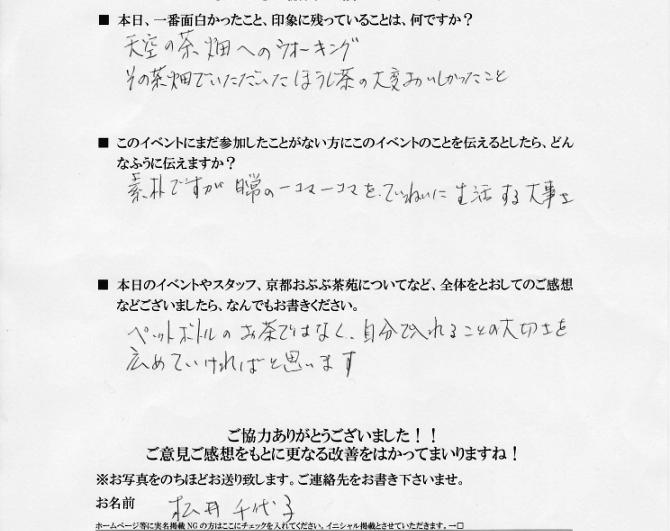 ■ 本日、一番面白かったこと、印象に残っていることは、何ですか？
天空の茶畑へのウォーキング
その茶畑でいただいたほうじ茶の大変おいしかったこと
■ このイベントにまだ参加したことがない方にこのイベントのことを伝えるとしたら、どん
なふうに伝えますか？
素朴ですが日常の一コマ一コマを、ていねいに生活する大事さ
■ 本日のイベントやスタッフ、京都おぶぶ茶苑についてなど、全体をとおしてのご感想
などございましたら、なんでもお書きください。
ペットボトルのお茶ではなく、自分で入れることの大切さを
広めていければと思います
ご協力ありがとうございました！！
ご意見ご感想をもとに更なる改善をはかってまいりますね！
※お写真をのちほどお送り致します。ご連絡先をお書き下さいませ。
お名前 松井 千代子
ホームページ等に実名掲載NGの方はここにチェックを入れてください。イニシャル掲載とさせていただきます。→□